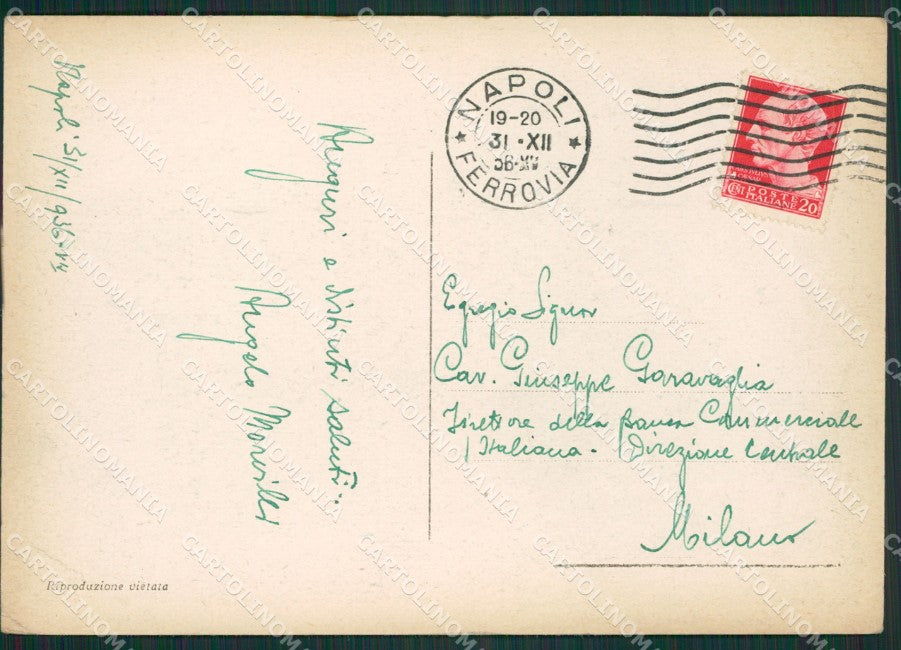 Napoli 31/XII/936-XV
Auguri e distinti saluti..
Angelo
NAPOLI
19-20
31·XII
36·XV
FERROVIA
POSTE
ITALIANE
CENT
20
Egregio Signor
Cav. Giuseppe Garavaglia
Direttore della Banca Commerciale
Italiana - Direzione Centrale
Milano
Riproduzione vietata
CARTOLINOMANIA